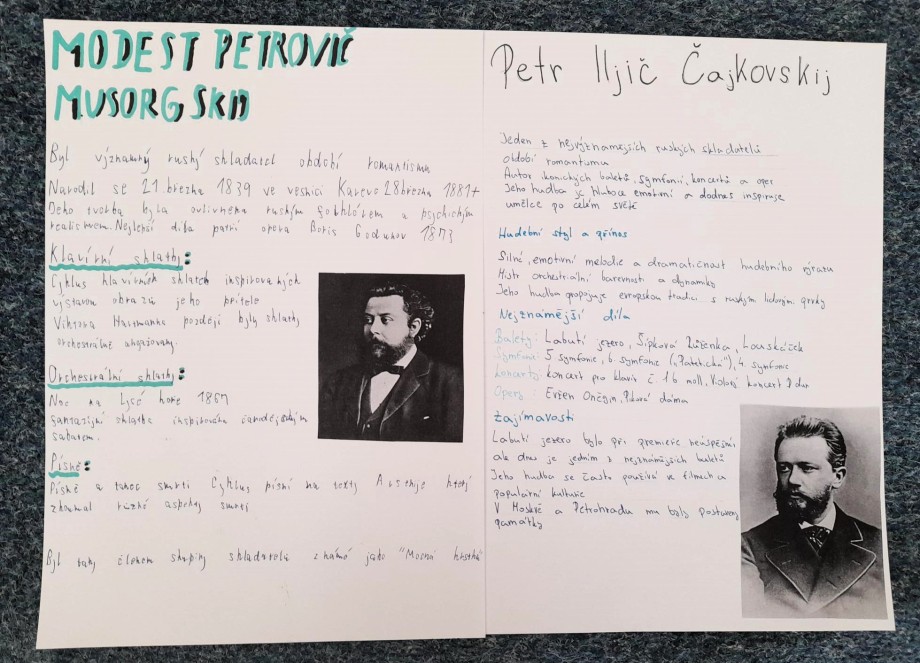 MODEST PETROVIČ
MUSORGSKIJ
Byl významný ruský skladatel období romantismu
Narodil se 21.března 1839 ve vesnici Karevo 28března 1881+
Jeho tvorba byla ovlivněna ruským folklórem a psychickým
realismem. Nejlepší díla patří opera Boris Godunov 1873
Klavírní skladby:
Cyklus klavírních skladeb inspirovaných
výstavou obrazů jeho přítele
Viktora Hartmanna později byly skladby
orchestrálně
Orchestrální skladby:
Noc na Lysé hoře 1867
skladba inspirována čarodějským
sabatem.
Písně:
Písně a tance smrti Cyklus písní na texty který
zkoumal různé aspekty smrti
Byl taky členem skupiny skladatelů známé jako "Mocná hrstka
Petr Iljič Čajkovskij
Jeden z nejvýznamejších ruských skladatelů
období romantumu
Autor ikonických baletů, symfonií, koncertů a oper
Jeho hudba je hluboce emotivní a dodnes inspiruje
umělce po celém světě
Hudební styl a přínos
Silné, emotivní melodie a dramatičnost hudebního výrazu
Mistr orchestriální barevnosti a dynamiky
Jeho hudba propojuje evropskou tradici s ruskými lidovými prvky
Nejznámější díla
Balety: Labutí jezero, Šípková Růženka, Louskáček
Symfonie: 5 symfonie, 6 symfonie ("Patetická"), 4 symfonie
Koncerty: koncert pro klavír č. 1 b moll, Violový koncert D dur
Opery: Evžen Oněgin, Piková dáma
Zajímavosti
Labutí jezero bylo při premieře neúspěšné,
ale dnes je jedním z nejznámějších baletů
Jeho hudba se často používá ve filmech a
populární kultuře
V Moskvě a Petrohradu mu byly postaveny
památky